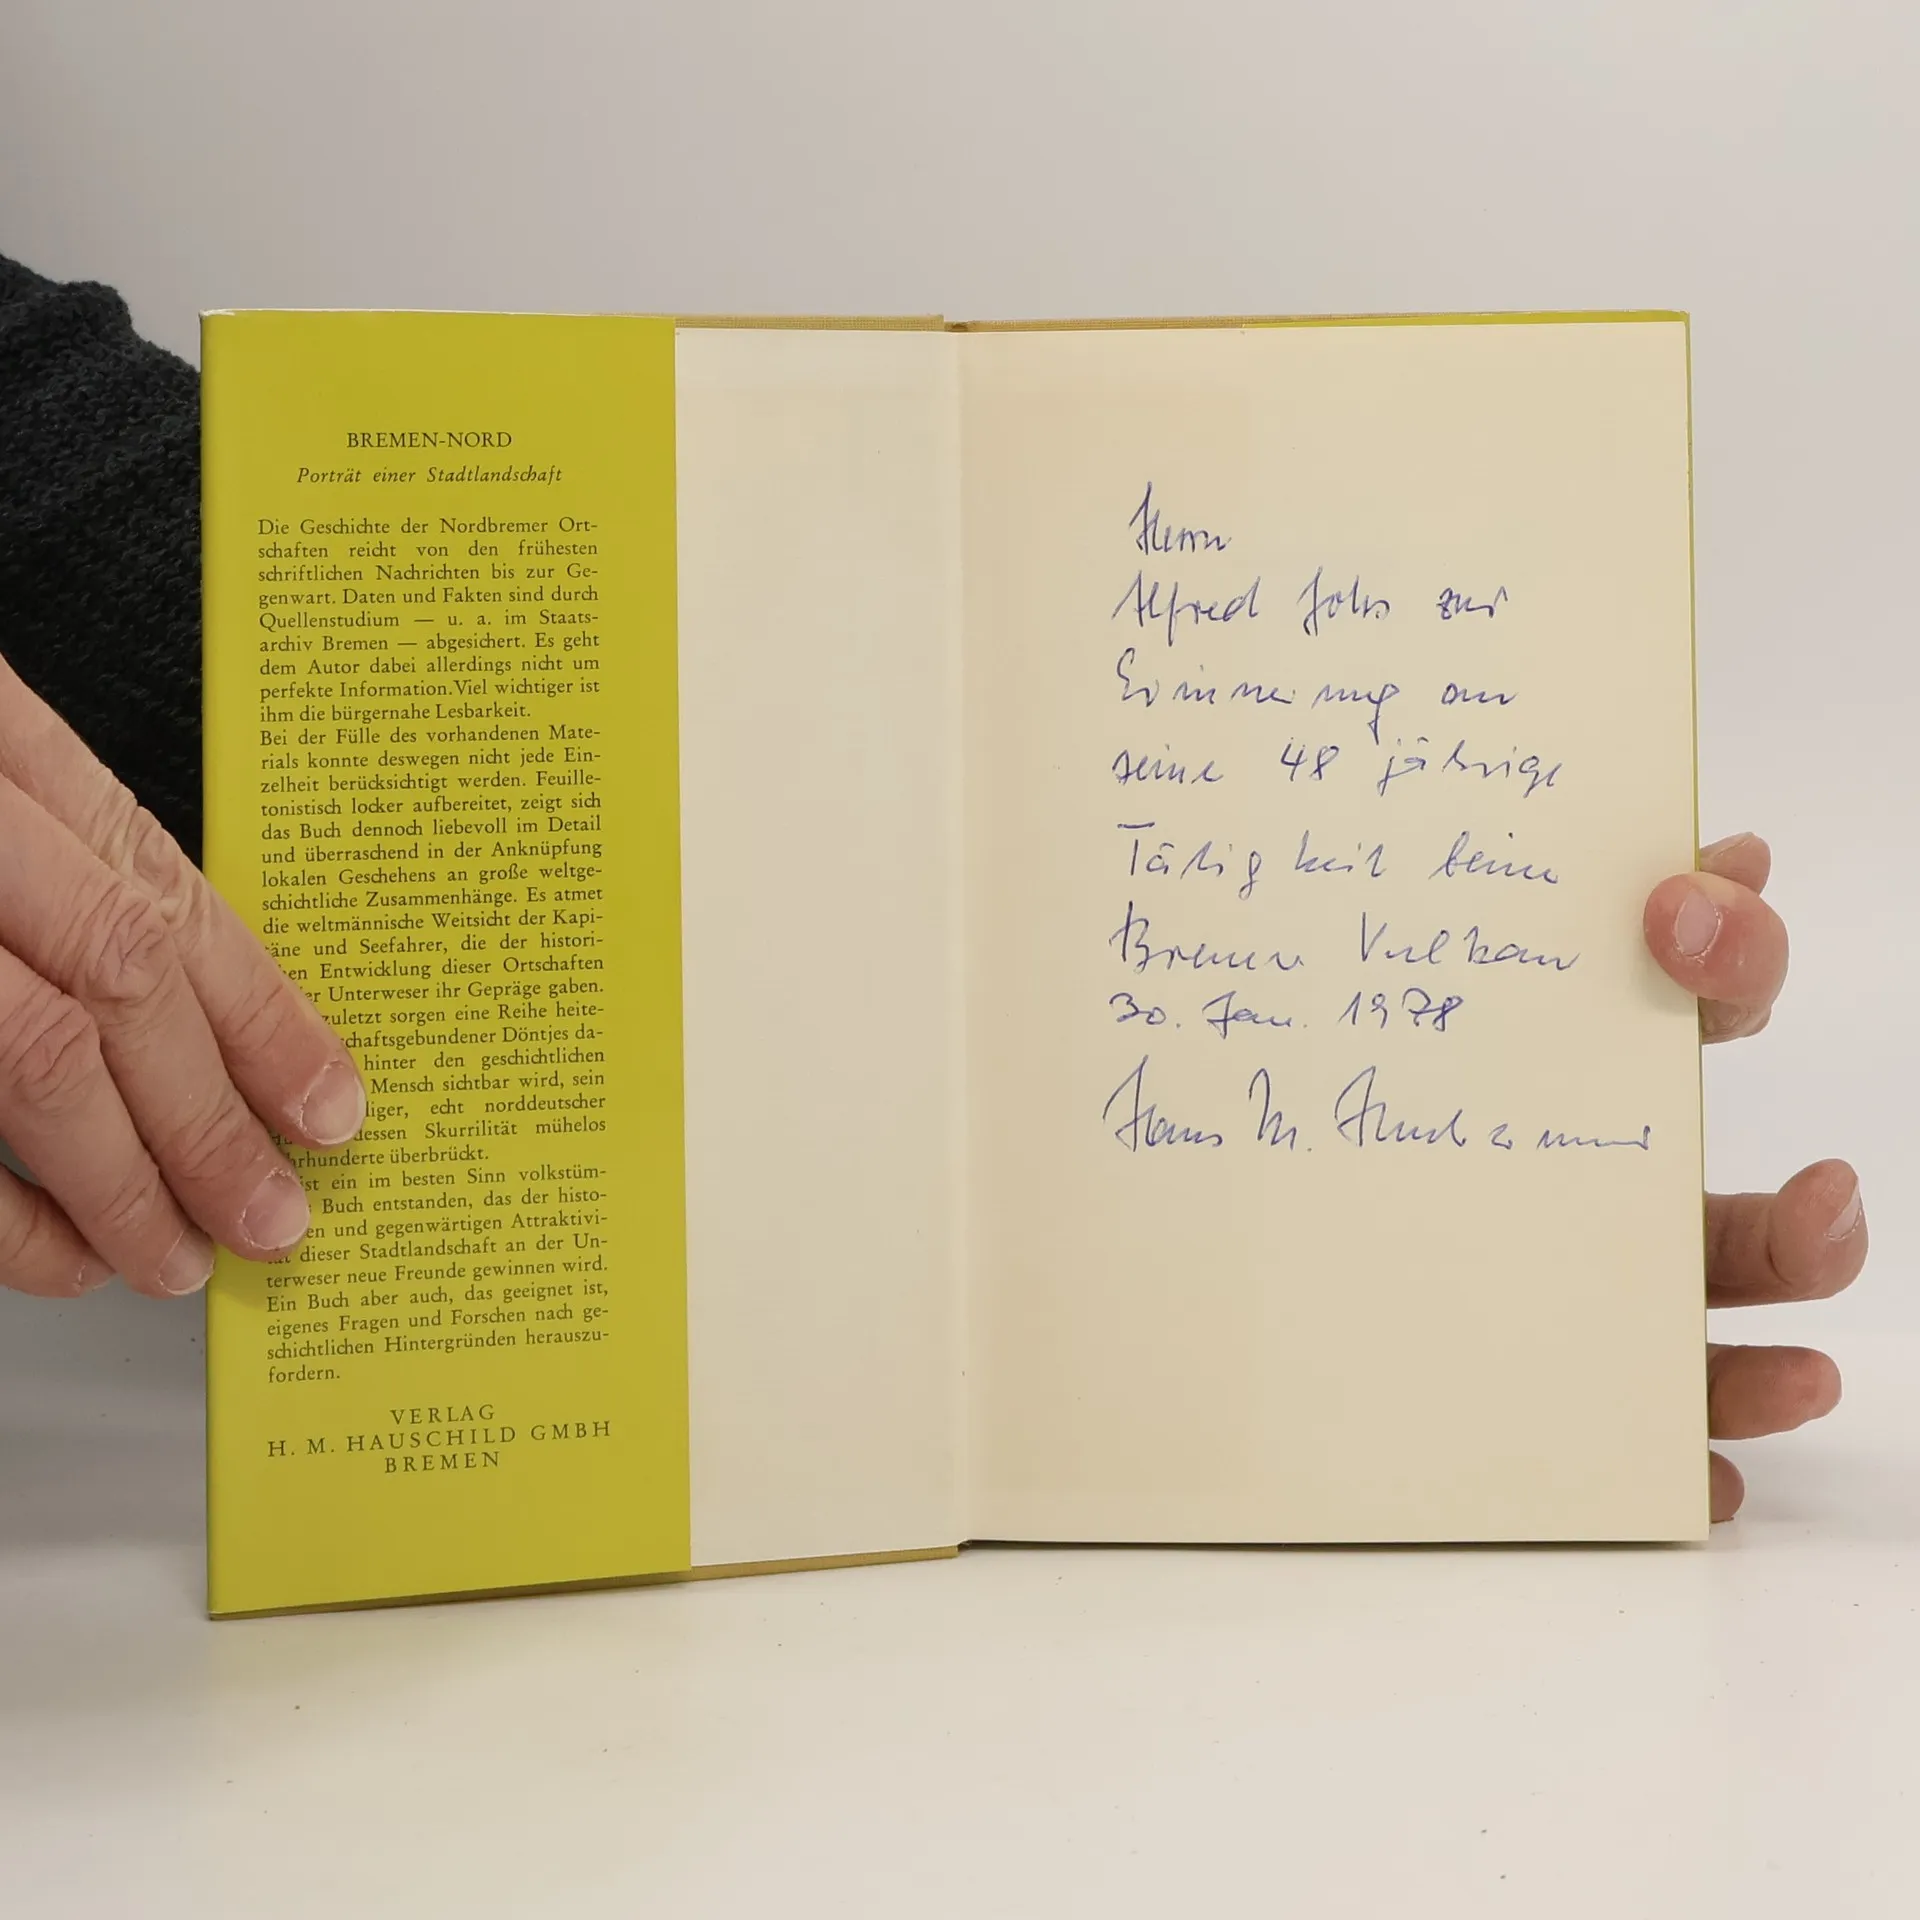 BREMEN-NORD
Porträt einer Stadtlandschaft
Die Geschichte der Nordbremer Ort-
schaften reicht von den frühesten
schriftlichen Nachrichten bis zur Ge-
genwart. Daten und Fakten sind durch
Quellenstudium — u. a. im Staats-
archiv Bremen — abgesichert. Es geht
dem Autor dabei allerdings nicht um
perfekte Information. Viel wichtiger ist
ihm die bürgernahe Lesbarkeit.
Bei der Fülle des vorhandenen Mate-
rials konnte deswegen nicht jede Ein-
zelheit berücksichtigt werden. Feuille-
tonistisch locker aufbereitet, zeigt sich
das Buch dennoch liebevoll im Detail
und überraschend in der Anknüpfung
lokalen Geschehens an große weltge-
schichtliche Zusammenhänge. Es atmet
die weltmännische Weitsicht der Kapi-
täne und Seefahrer, die der histori-
Entwicklung dieser Ortschaften
Unterweser ihr Gepräge gaben.
zuletzt sorgen eine Reihe heite-
schaftsgebundener Döntjes da-
hinter den geschichtlichen
Mensch sichtbar wird, sein
echt norddeutscher
dessen Skurrilität mühelos
überbrückt.
ist ein im besten Sinn volkstüm-
Buch entstanden, das der histo-
und gegenwärtigen Attraktivi-
dieser Stadtlandschaft an der Un-
terweser neue Freunde gewinnen wird.
Ein Buch aber auch, das geeignet ist,
eigenes Fragen und Forschen nach ge-
schichtlichen Hintergründen herauszu-
fordern.
VERLAG
H. M. HAUSCHILD GMBH
BREMEN
Herrn
Alfred zur
Erinnerung an
seine 48 jährige
Tätigkeit beim
Bremer Vulkan
30. Jan. 1978
Hans M.